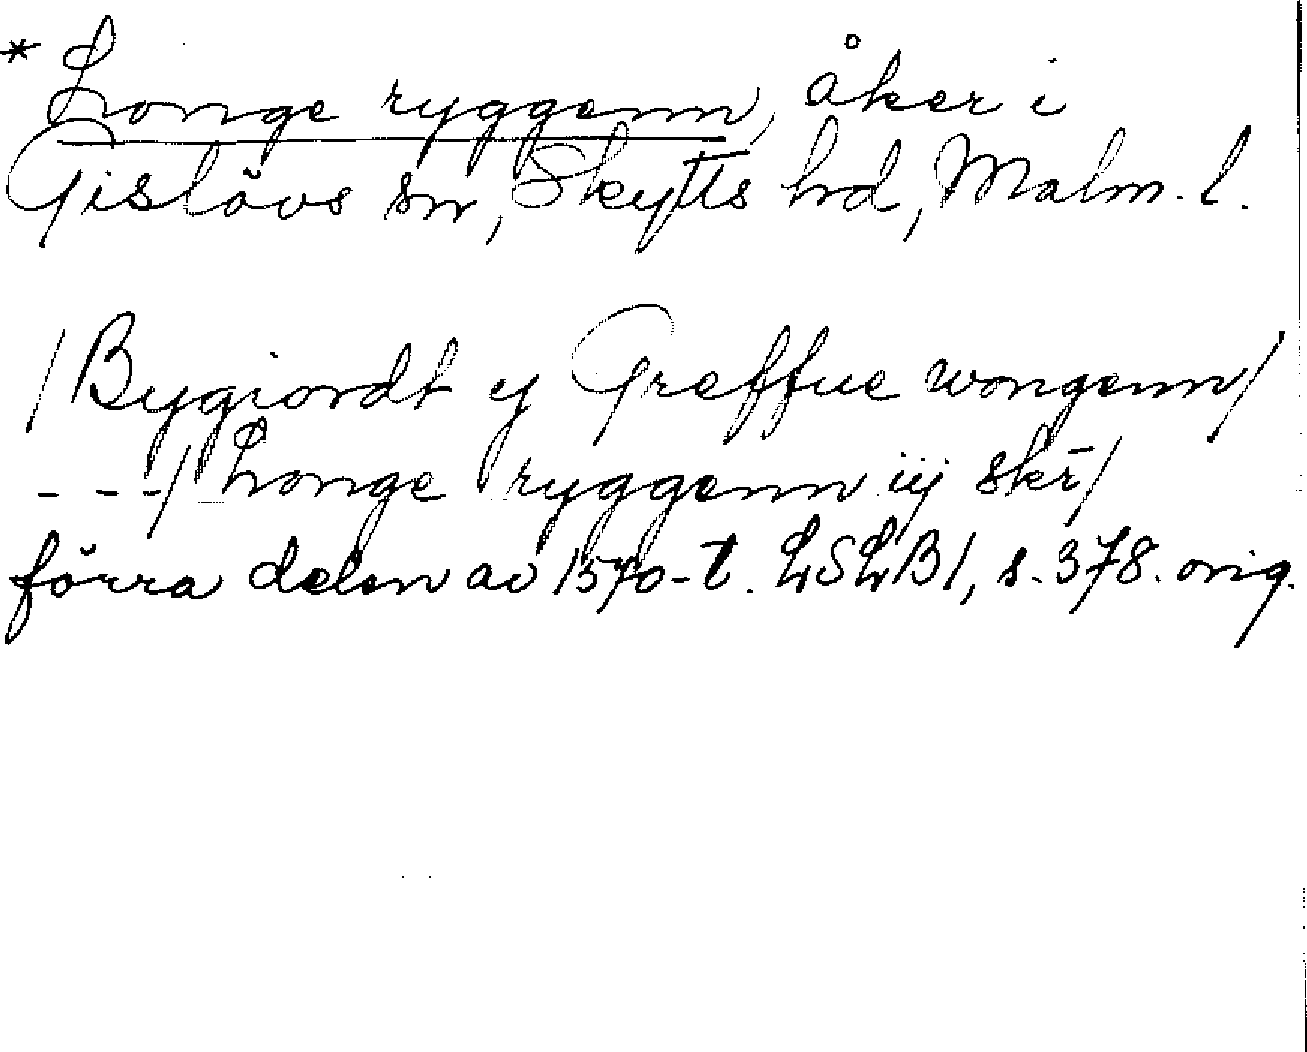 * Longe ryggenn, åker i
Gislövs sn, Skytts hd, Malm. l.
/Bygiordt ij Greffue wongenn/
---/ Longe ryggenn iij sker/
förra delen av 1570-t. LSLB1, s. 378. orig.